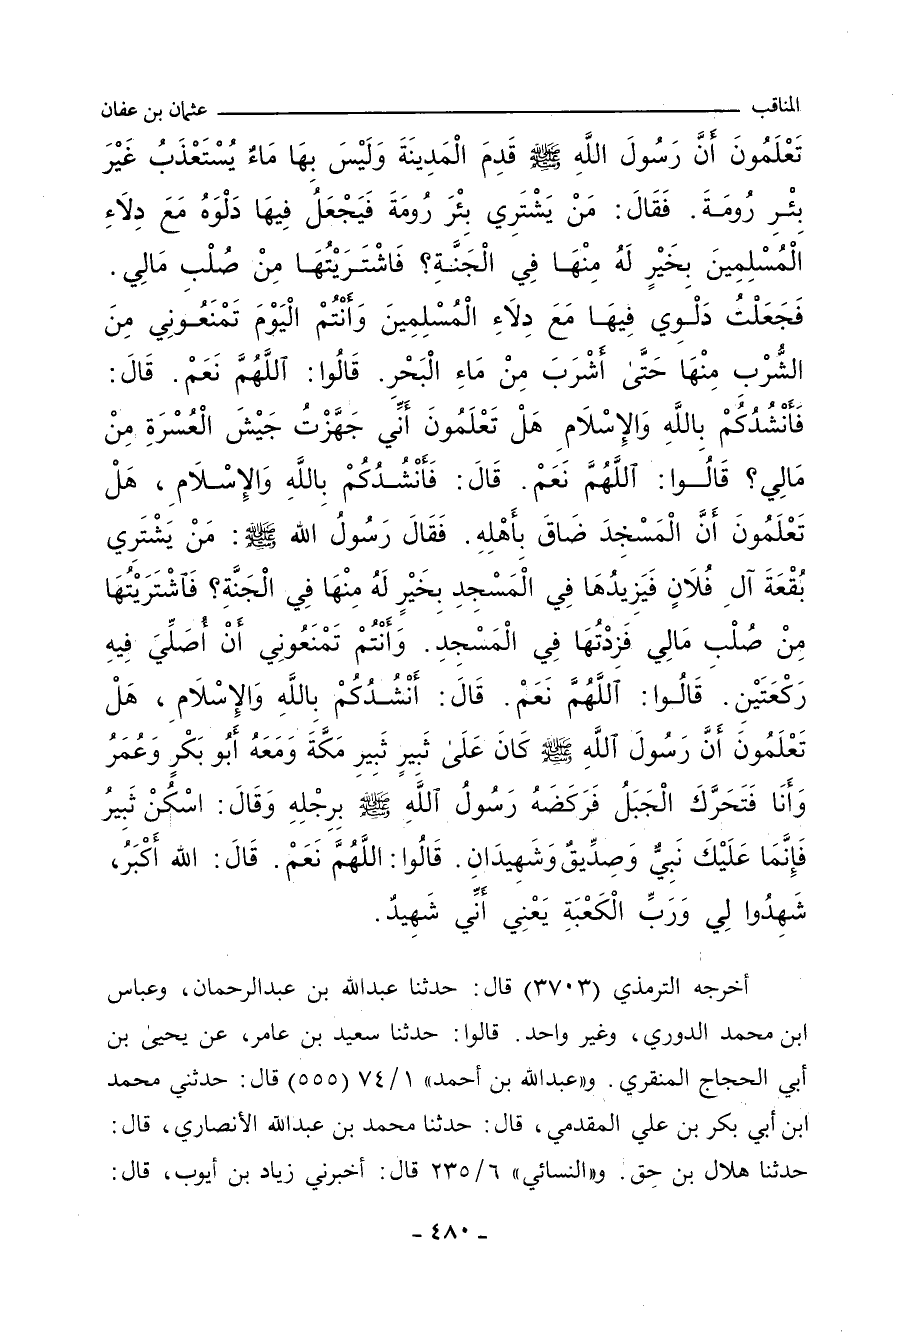 المناقب ــــــــــ عثمان بن عفان
تَعْلَمُونَ أَنَّ رَسُولَ اللَّهِ ﷺ قَدِمَ الْمَدِينَةَ وَلَيْسَ بِهَا مَاءٌ يُسْتَعْذَبُ غَيْرَ
بِئْرِ رُومَةَ. فَقَالَ: مَنْ يَشْتَرِي بِئْرَ رُومَةَ فَيَجْعَلُ فِيهَا دَلْوَهُ مَعَ دِلَاءِ
الْمُسْلِمِينَ بِخَيْرٍ لَهُ مِنْهَا فِي الْجَنَّةِ؟ فَاشْتَرَيْتُهَا مِنْ صُلْبِ مَالِي.
فَجَعَلْتُ دَلْوِي فِيهَا مَعَ دِلَاءِ الْمُسْلِمِينَ وَأَنْتُمُ الْيَوْمَ تَمْنَعُونِي مِنَ
الشُّرْبِ مِنْهَا حَتَّىٰ أَشْرَبَ مِنْ مَاءِ الْبَحْرِ. قَالُوا: ٱللَّهُمَّ نَعَمْ. قَالَ:
فَأَنْشُدُكُمْ بِاللَّهِ وَالإِسْلَامِ هَلْ تَعْلَمُونَ أَنِّي جَهَّزْتُ جَيْشَ الْعُسْرَةِ مِنْ
مَالِي؟ قَالُوا: ٱللَّهُمَّ نَعَمْ. قَالَ: فَأَنْشُدُكُمْ بِاللَّهِ وَالإِسْلَامِ، هَلْ
تَعْلَمُونَ أَنَّ الْمَسْجِدَ ضَاقَ بِأَهْلِهِ. فَقَالَ رَسُولُ الله ﷺ: مَنْ يَشْتَرِي
بُقْعَةَ آلِ فُلَانٍ فَيَزِيدُهَا فِي الْمَسْجِدِ بِخَيْرٍ لَهُ مِنْهَا فِي الْجَنَّةِ؟ فَٱشْتَرَيْتُهَا
مِنْ صُلْبِ مَالِي فَزِدْتُهَا فِي الْمَسْجِدِ. وَأَنْتُمْ تَمْنَعُونِي أَنْ أُصَلِّيَ فِيهِ
رَكْعَتَيْنِ. قَالُوا: ٱللَّهُمَّ نَعَمْ. قَالَ: أَنْشُدُكُمْ بِاللَّهِ وَالإِسْلَامِ، هَلْ
تَعْلَمُونَ أَنَّ رَسُولَ ٱللَّهِ ﷺ كَانَ عَلَىٰ ثَبِيرِ ثَبِيرِ مَكَّةَ وَمَعَهُ أَبُو بَكْرٍ وَعُمَرُ
وَأَنَا فَتَحَرَّكَ الْجَبَلُ فَرَكَضَهُ رَسُولُ ٱللَّهِ ﷺ بِرِجْلِهِ وَقَالَ: اسْكُنْ ثَبِيرُ
فَإِنَّمَا عَلَيْكَ نَبِيٌّ وَصِدِّيقٌ وَشَهِيدَانِ. قَالُوا: اللَّهُمَّ نَعَمْ. قَالَ: الله أَكْبَرُ،
شَهِدُوا لِي وَرَبِّ الْكَعْبَةِ يَعْنِي أَنِّي شَهِيدٌ.
أخرجه الترمذي (٣٧٠٣) قال: حدثنا عبدالله بن عبدالرحمان، وعباس
ابن محمد الدوري، وغير واحد. قالوا: حدثنا سعيد بن عامر، عن يحيىٰ بن
أبي الحجاج المنقري. و«عبدالله بن أحمد» ١/ ٧٤ (٥٥٥) قال: حدثني محمد
ابن أبي بكر بن علي المقدمي، قال: حدثنا محمد بن عبدالله الأنصاري، قال:
حدثنا هلال بن حق. و«النسائي» ٦/ ٢٣٥ قال: أخبرني زياد بن أيوب، قال:
- ٤٨٠ -